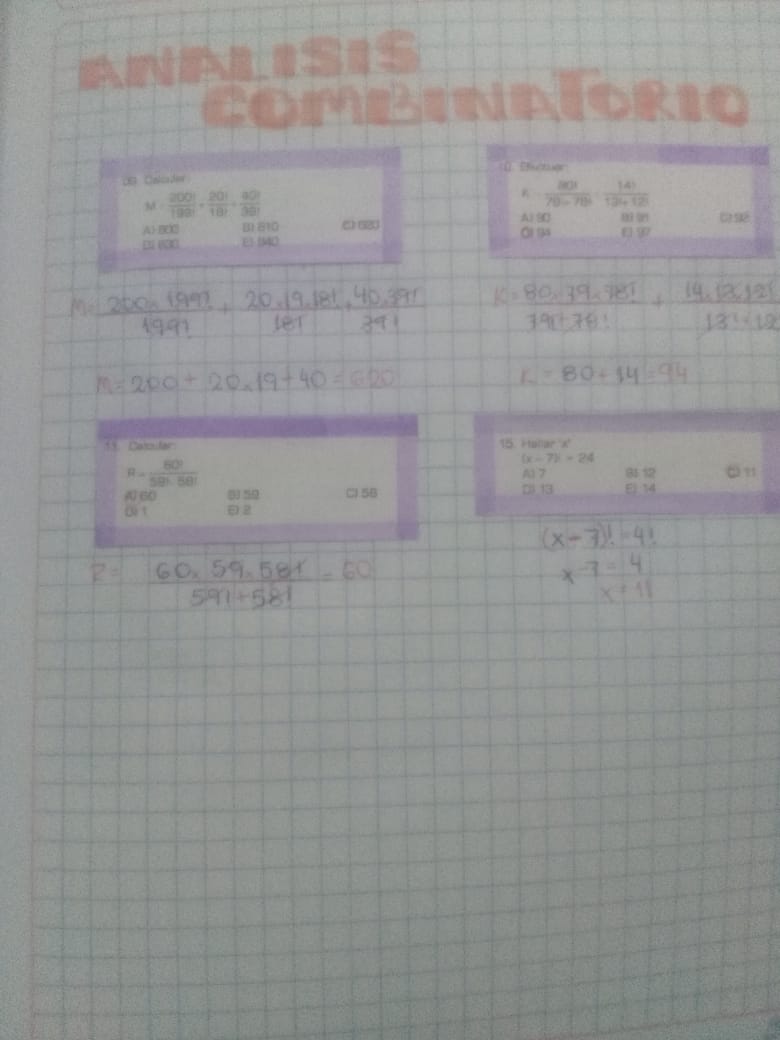 ANALISIS
COMBINATORIO
09. Calcular:
M = 200!/199! + 20!/18! + 40!/39!
A) 600 B) 610 C) 620
D) 630 E) 640
M= 200 x 199! / 199! + 20.19.18! / 18! + 40.39! / 39!
M= 200 + 20 x 19 + 40 = 620
10. Efectuar:
A) 90 B) 91 C) 92
D) 94 E) 97
K= 80 x 79 x 78! / 79! + 78! + 14.13.12! / 13! + 12
K = 80 + 14 = 94
Calcular:
R = 60! / 59! 58!
A) 60 B) 59 C) 58
D) 1 E) 2
R= 60 x 59 x 58! / 59! + 58! = 60
15. Hallar 'x'
(x - 7)! = 24
A) 7 B) 12 C) 11
D) 13 E) 14
(x - 7)! = 4!
x - 7 = 4
x = 11